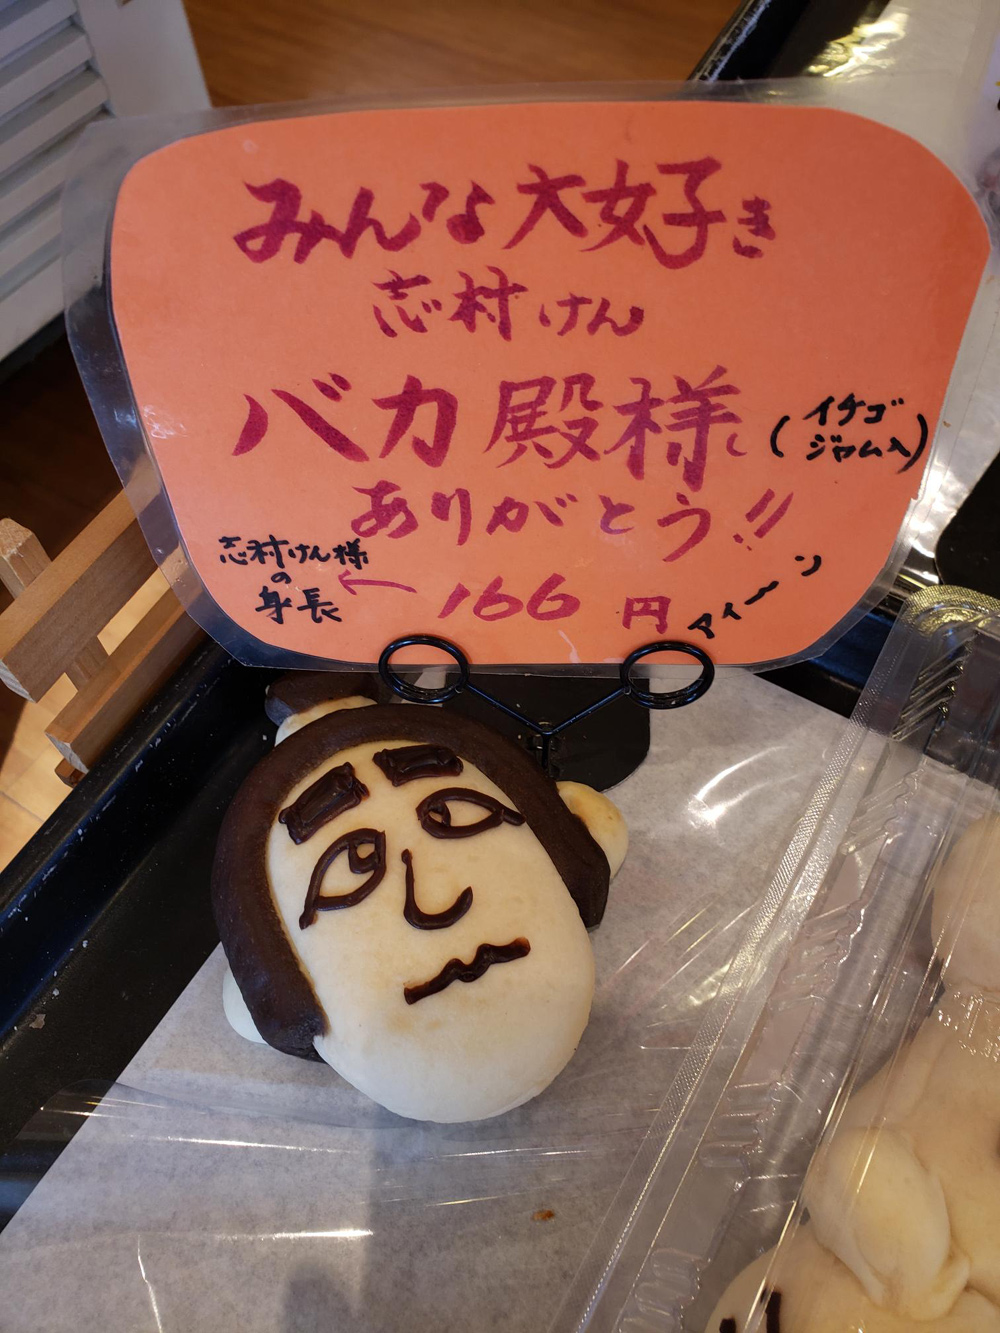 みんな大好き
志村けん
バカ殿様
(イチゴ
ジャム入)
ありがとう!!
志村けん様
の
身長
← 166 円
アイーン